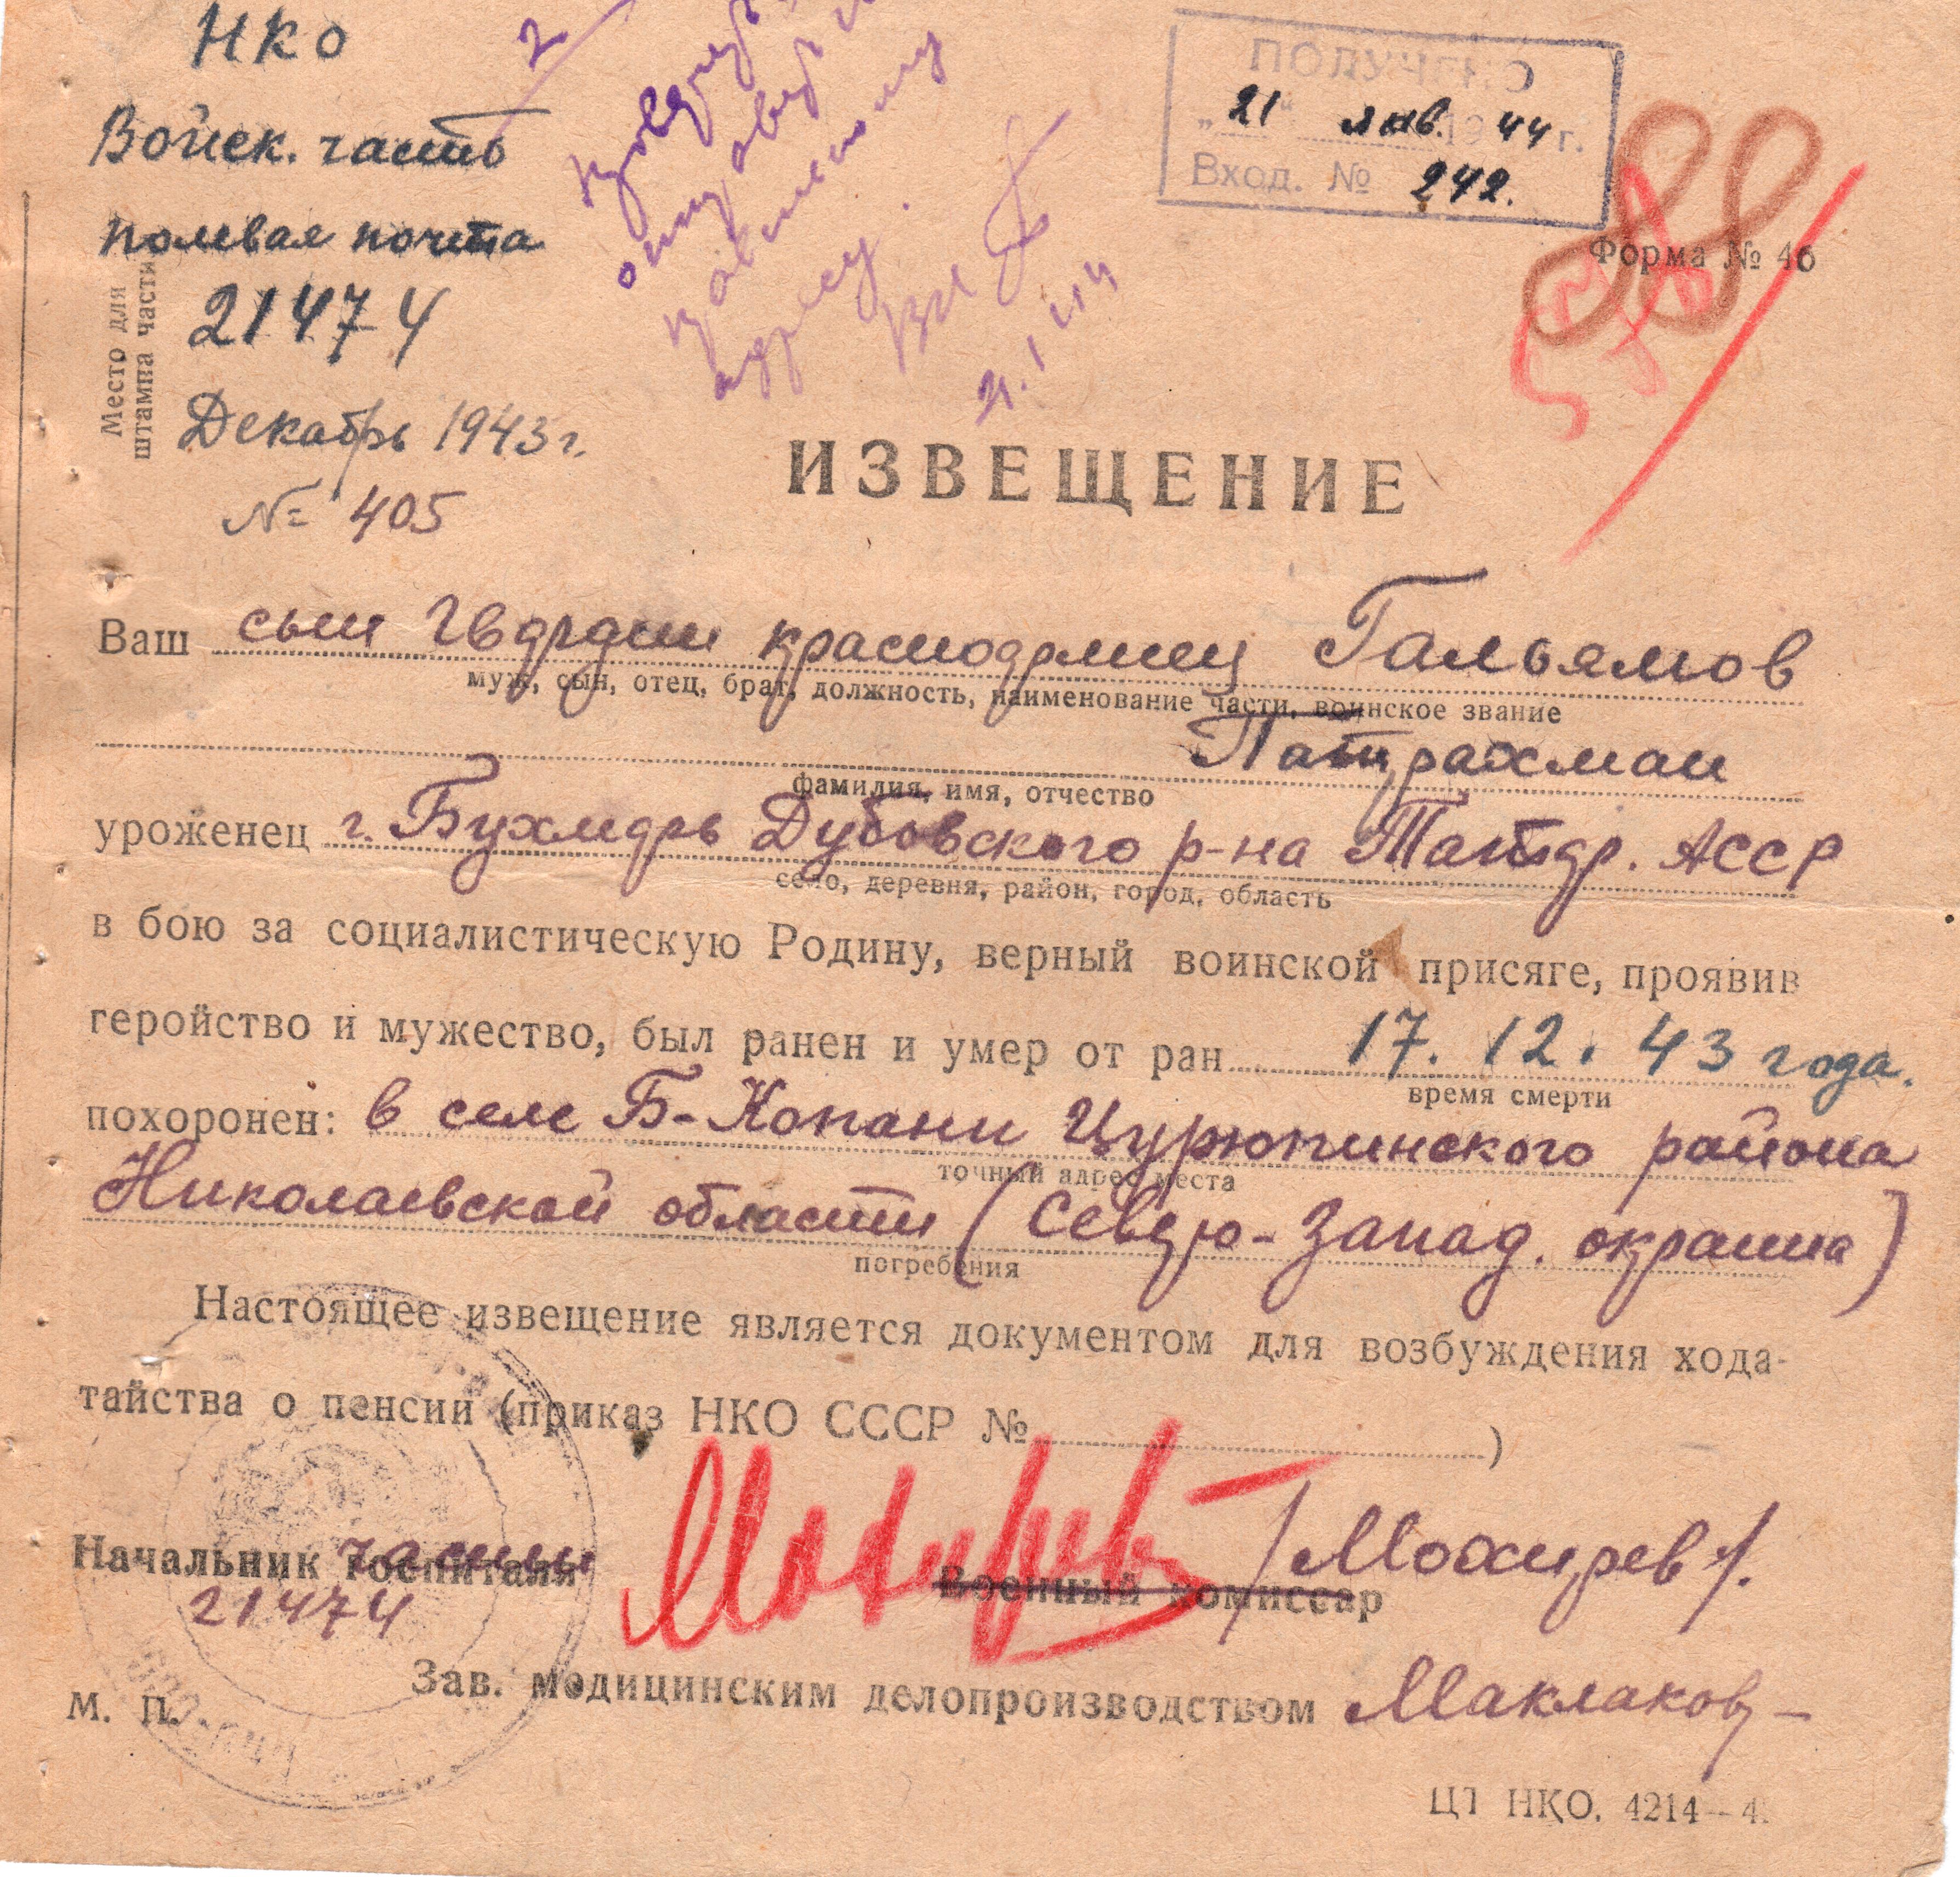 НКО
Войск. часть
полевая почта
21474
Декабрь 1943 г.
№ 405
Место для
штампа части
2
адресу
21.1.44
ПОЛУЧЕНО
„21“ янв. 1944 г.
Вход. № 242.
88
Форма № 46
ИЗВЕЩЕНИЕ
Ваш сын гвардии красноармеец Гальямов
муж, сын, отец, брат, должность, наименование части, воинское звание
Патрахман
фамилия, имя, отчество
уроженец г. Бухмарь Дубовского р-на Татар. АССР
село, деревня, район, город, область
в бою за социалистическую Родину, верный воинской присяге, проявив
геройство и мужество, был ранен и умер от ран 17. 12. 43 года.
время смерти
похоронен: в селе Б-Копани Цурюпинского района
точный адрес места
Николаевской области (Северо-Запад. окраина)
погребения
Настоящее извещение является документом для возбуждения хода-
тайства о пенсии (приказ НКО СССР №)
Начальник госпиталя части
21474
Военный комиссар
/Мохирев/.
Зав. медицинским делопроизводством Маклаков
М. П.
ЦТ НКО. 4214—4